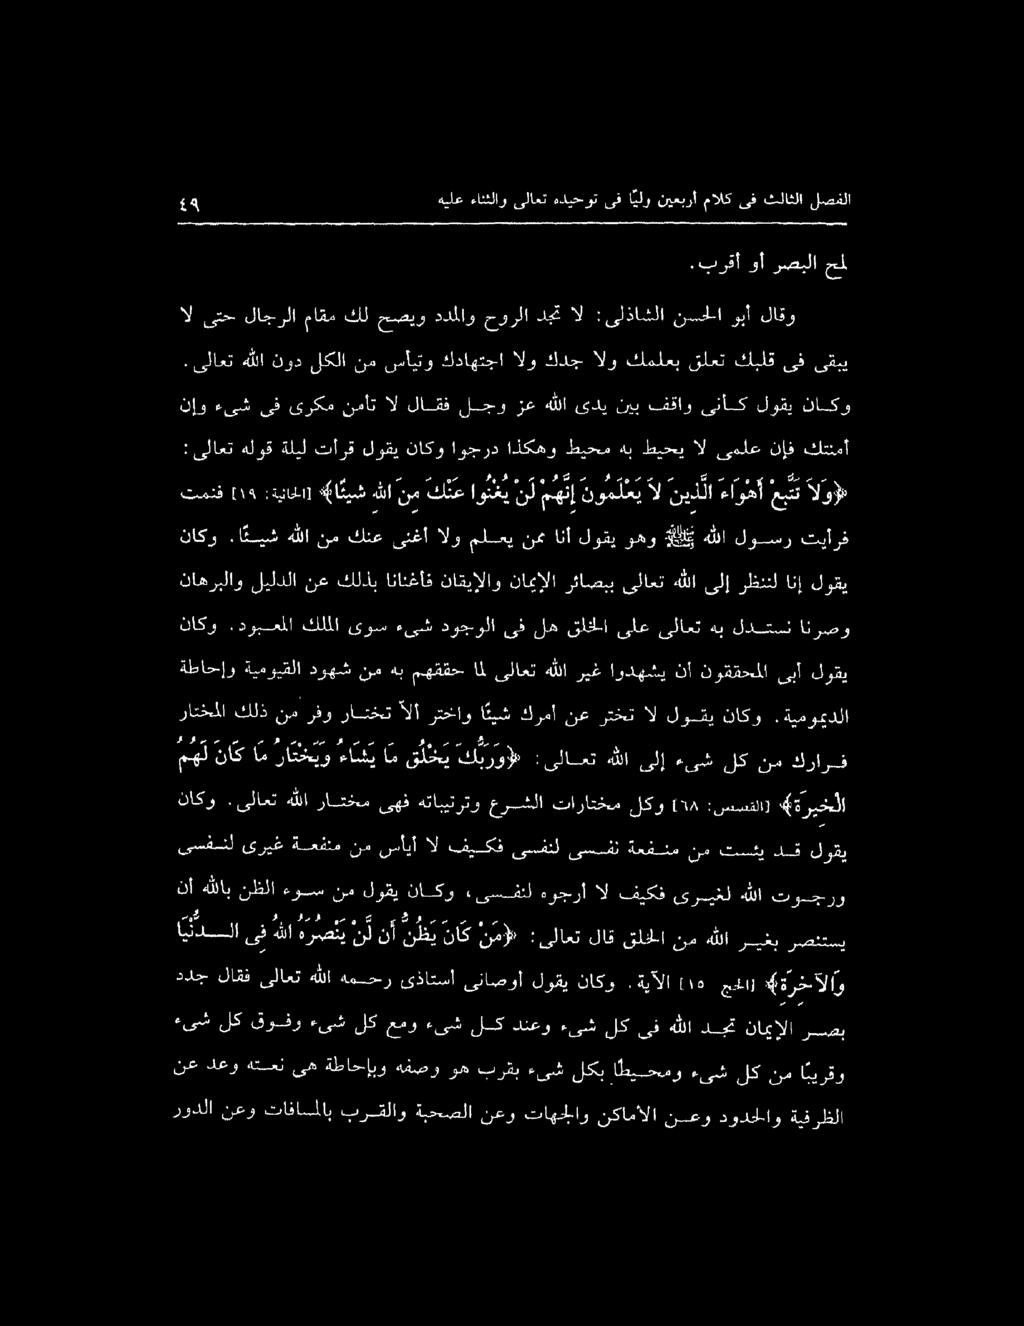 الفصل الثالث فى كلام أربعين وليًا فى توحيده تعالى والثناء عليه ٤٩
لمح البصر أو أقرب.
وقال أبو الحسن الشاذلى: لا تجد الروح والمدد ويصح لك مقام الرجال حتى لا
يبقى فى قلبك تعلق بعلمك ولا جدك ولا اجتهادك وتيأس من الكل دون الله تعالى.
وكان يقول كأنى واقف بين يدى الله عز وجل فقال لا تأمن مكرى فى شىء وإن
أمنتك فإن علمى لا يحيط به محيط وهكذا درجوا وكان يقول قرأت ليلة قوله تعالى:
﴿وَلاَ تَتَّبِعْ أَهْوَاءَ الَّذِينَ لاَ يَعْلَمُونَ إِنَّهُمْ لَن يُغْنُوا عَنْكَ مِنَ اللهِ شيئًا﴾ [الجاثية: ١٩] فنمت
فرأيت رسول الله ﷺ وهو يقول أنا ممن يعلم ولا أغنى عنك من الله شيئًا. وكان
يقول إنا لننظر إلى الله تعالى ببصائر الإيمان والإيقان فأغنانا بذلك عن الدليل والبرهان
وصرنا نستدل به تعالى على الخلق هل فى الوجود شىء سوى الملك المعبود. وكان
يقول أبى المحققون أن يشهدوا غير الله تعالى لما حققهم به من شهود القيومية وإحاطة
الديمومية. وكان يقول لا تختر عن أمرك شيئًا واختر ألاَّ تختار وفر من ذلك المختار
فرارك من كل شىء إلى الله تعالى: ﴿وَرَبُّكَ يَخْلُق مَا يَشَاءُ وَيَخْتَارُ مَا كَانَ لَهُمُ
الْخِيَرَة﴾ [القصص: ٦٨] وكل مختارات الشرع وترتيباته فهى مختار الله تعالى. وكان
يقول قد يئست من منفعة نفسى لنفسى فكيف لا أيأس من منفعة غيرى لنفسى
ورجوت الله لغيرى فكيف لا أرجوه لنفسى، وكان يقول من سوء الظن بالله أن
يستنصر بغير الله من الخلق قال تعالى: ﴿مَنْ كَانَ يَظُنُّ أَن لَّنْ يَنْصُرَهُ اللهُ فِى الدُّنْيَا
وَالآخِرَةِ﴾ [الحج ١٥] الآية. وكان يقول أوصانى أستاذى رحمه الله تعالى فقال جدد
بصر الإيمان تجد الله فى كل شىء وعند كل شىء ومع كل شىء وفوق كل شىء
وقريبًا من كل شىء ومحيطًا بكل شىء بقرب هو وصفه وبإحاطة هى نعته وعد عن
الظرفية والحدود وعن الأماكن والجهات وعن الصحبة والقرب بالمسافات وعن الدور